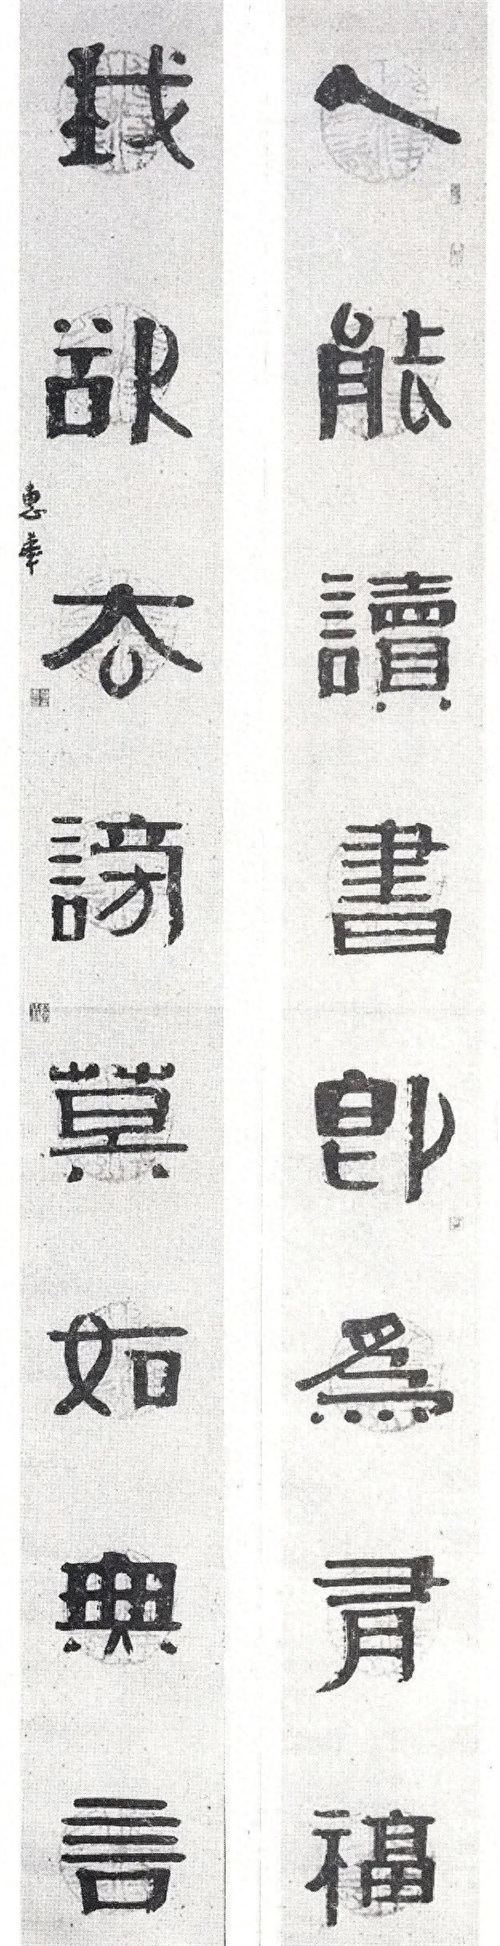 人能讀書即為有福
我欲去謗莫如無言
惠